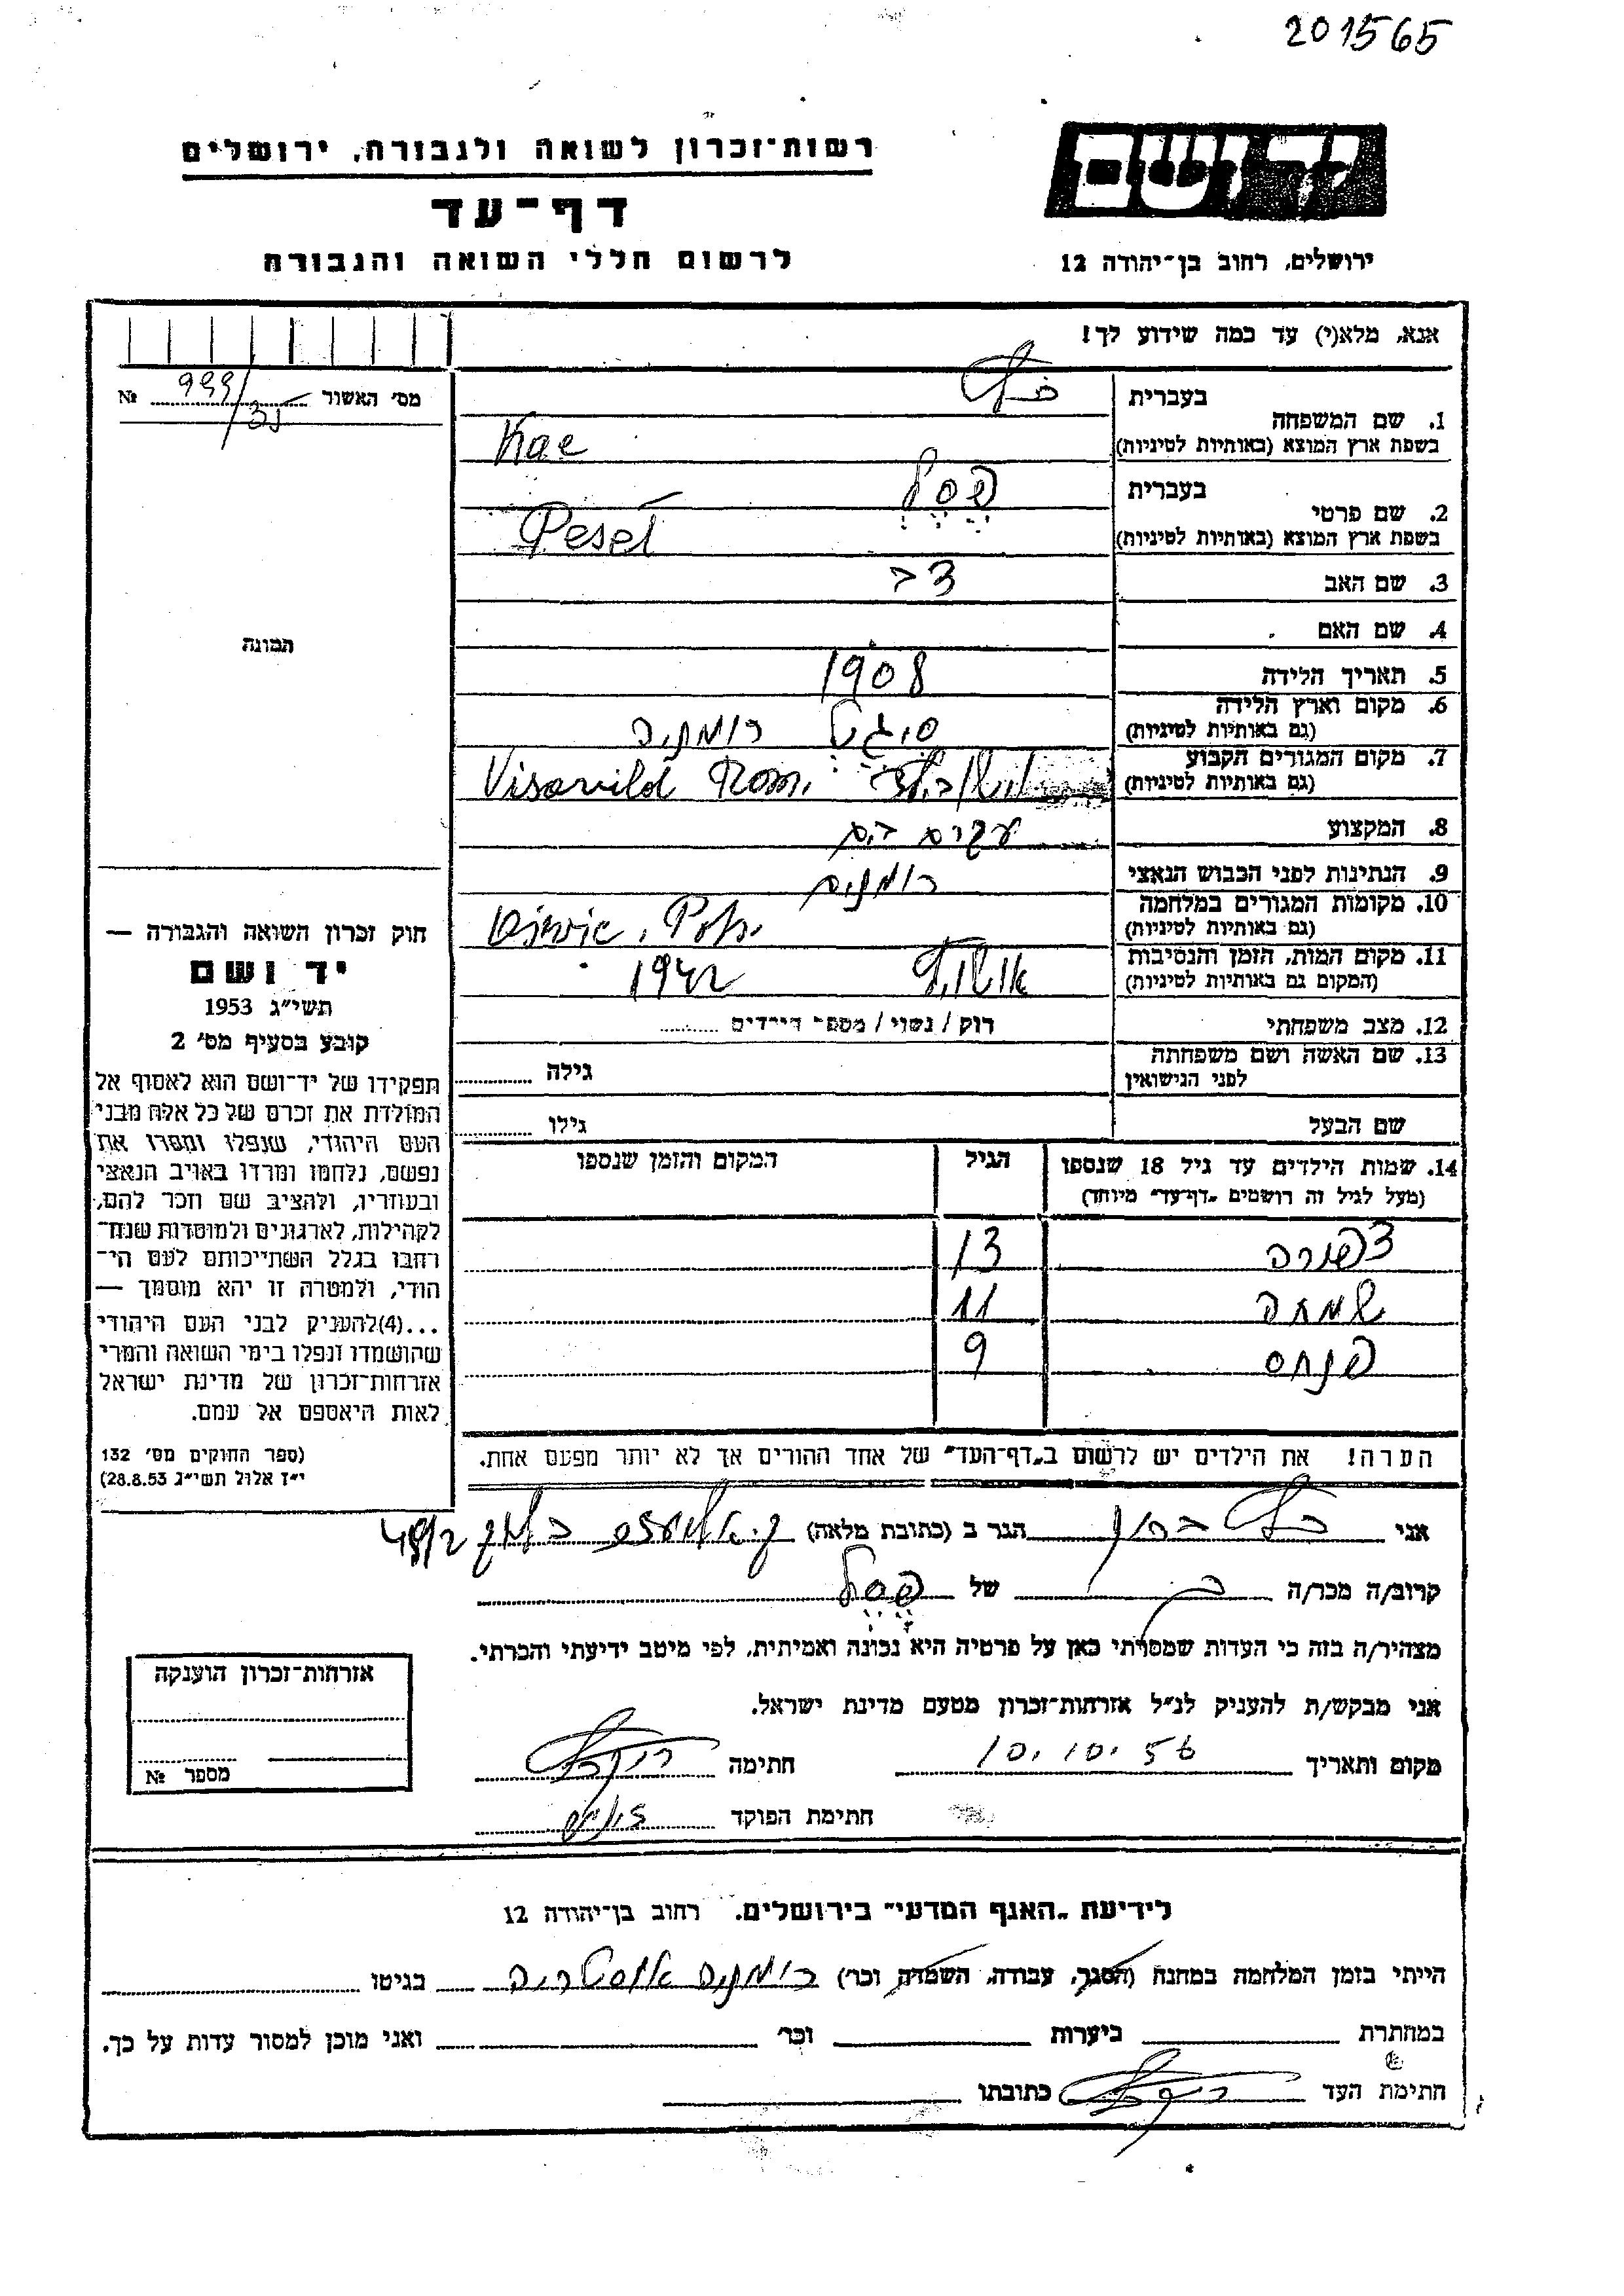 201565
רשות־זכרון לשואה ולגבורה, ירושלים
דף־עד
לרשום חללי השואה והגבורה
ידושם
ירושלים, רחוב בן־יהודה 12
אנא, מלא(י) עד כמה שידוע לך!
מס' האשור 999/35 №
בעברית
1. שם המשפחה
בשפת ארץ המוצא (באותיות לטיניות) Kac
בעברית פסל
2. שם פרטי
בשפת ארץ המוצא (באותיות לטיניות) Pesel
3. שם האב צבי
4. שם האם
5. תאריך הלידה 1908
6. מקום וארץ הלידה סיגט רומניה
(גם באותיות לטיניות)
7. מקום המגורים הקבוע Rom.
(גם באותיות לטיניות)
8. המקצוע עקרת בית
9. הנתינות לפני הכבוש הנאצי רומנית
10. מקומות המגורים במלחמה
(גם באותיות לטיניות)
11. מקום המות, הזמן והנסיבות 1942
(המקום גם באותיות לטיניות)
12. מצב משפחתי רוק / נשוי / מספר הילדים
13. שם האשה ושם משפחתה
לפני הנישואין גילה
שם הבעל גילו
14. שמות הילדים עד גיל 18 שנספו הגיל המקום והזמן שנספו
(מעל לגיל זה רושמים „דף־עד" מיוחד)
צפורה 13
שמחה 11
פנחס 9
הערה! את הילדים יש לרשום ב„דף־העד" של אחד ההורים אך לא יותר מפעם אחת.
תמונה
חוק זכרון השואה והגבורה —
יד ושם
תשי"ג 1953
קובע בסעיף מס' 2
תפקידו של יד־ושם הוא לאסוף אל
המולדת את זכרם של כל אלה מבני
העם היהודי, שנפלו ומסרו את
נפשם, נלחמו ומרדו באויב הנאצי
ובעוזריו, ולהציב שם וזכר להם,
לקהילות, לארגונים ולמוסדות שנח־
רבו בגלל השתייכותם לעם הי־
הודי, ולמטרה זו יהא מוסמך —
...(4)להעניק לבני העם היהודי
שהושמדו ונפלו בימי השואה והמרי
אזרחות־זכרון של מדינת ישראל
לאות היאספם אל עמם.
(ספר החוקים מס' 132
י"ז אלול תשי"ג 28.8.53)
אני הגר ב (כתובת מלאה) ק. 49/2
קרוב/ה מכר/ה של פסל
מצהיר/ה בזה כי העדות שמסרתי כאן על פרטיה היא נכונה ואמיתית, לפי מיטב ידיעתי והכרתי.
אני מבקש/ת להעניק לנ"ל אזרחות־זכרון מטעם מדינת ישראל.
מקום ותאריך 10.10.56 חתימה
חתימת הפוקד
אזרחות־זכרון הוענקה
מספר №
לידיעת „האגף המדעי" בירושלים. רחוב בן־יהודה 12
הייתי בזמן המלחמה במחנה (הסגר, עבודה, השמדה וכר') רומניה אוסטריה בגיטו
במחתרת ביערות וכר' ואני מוכן למסור עדות על כך.
חתימת העד כתובתו